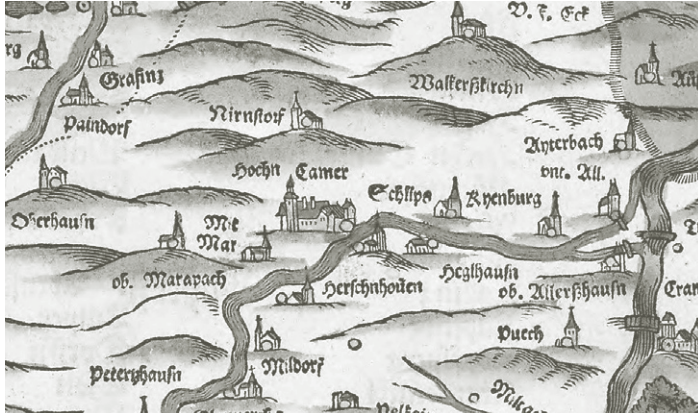 V. F. Eck
Grafing
Walkerßkirchn
Paindorf
Nirnstorf
Ayterbach
vnt. All.
Hochn Camer
Schlips
Kyenburg
Oberhausn
Mit
Mar
ob. Marapach
Herschnhousen
Heglhausn
ob. Allerßhausn
Cran
Puech
Mildorf
Peterßhausn